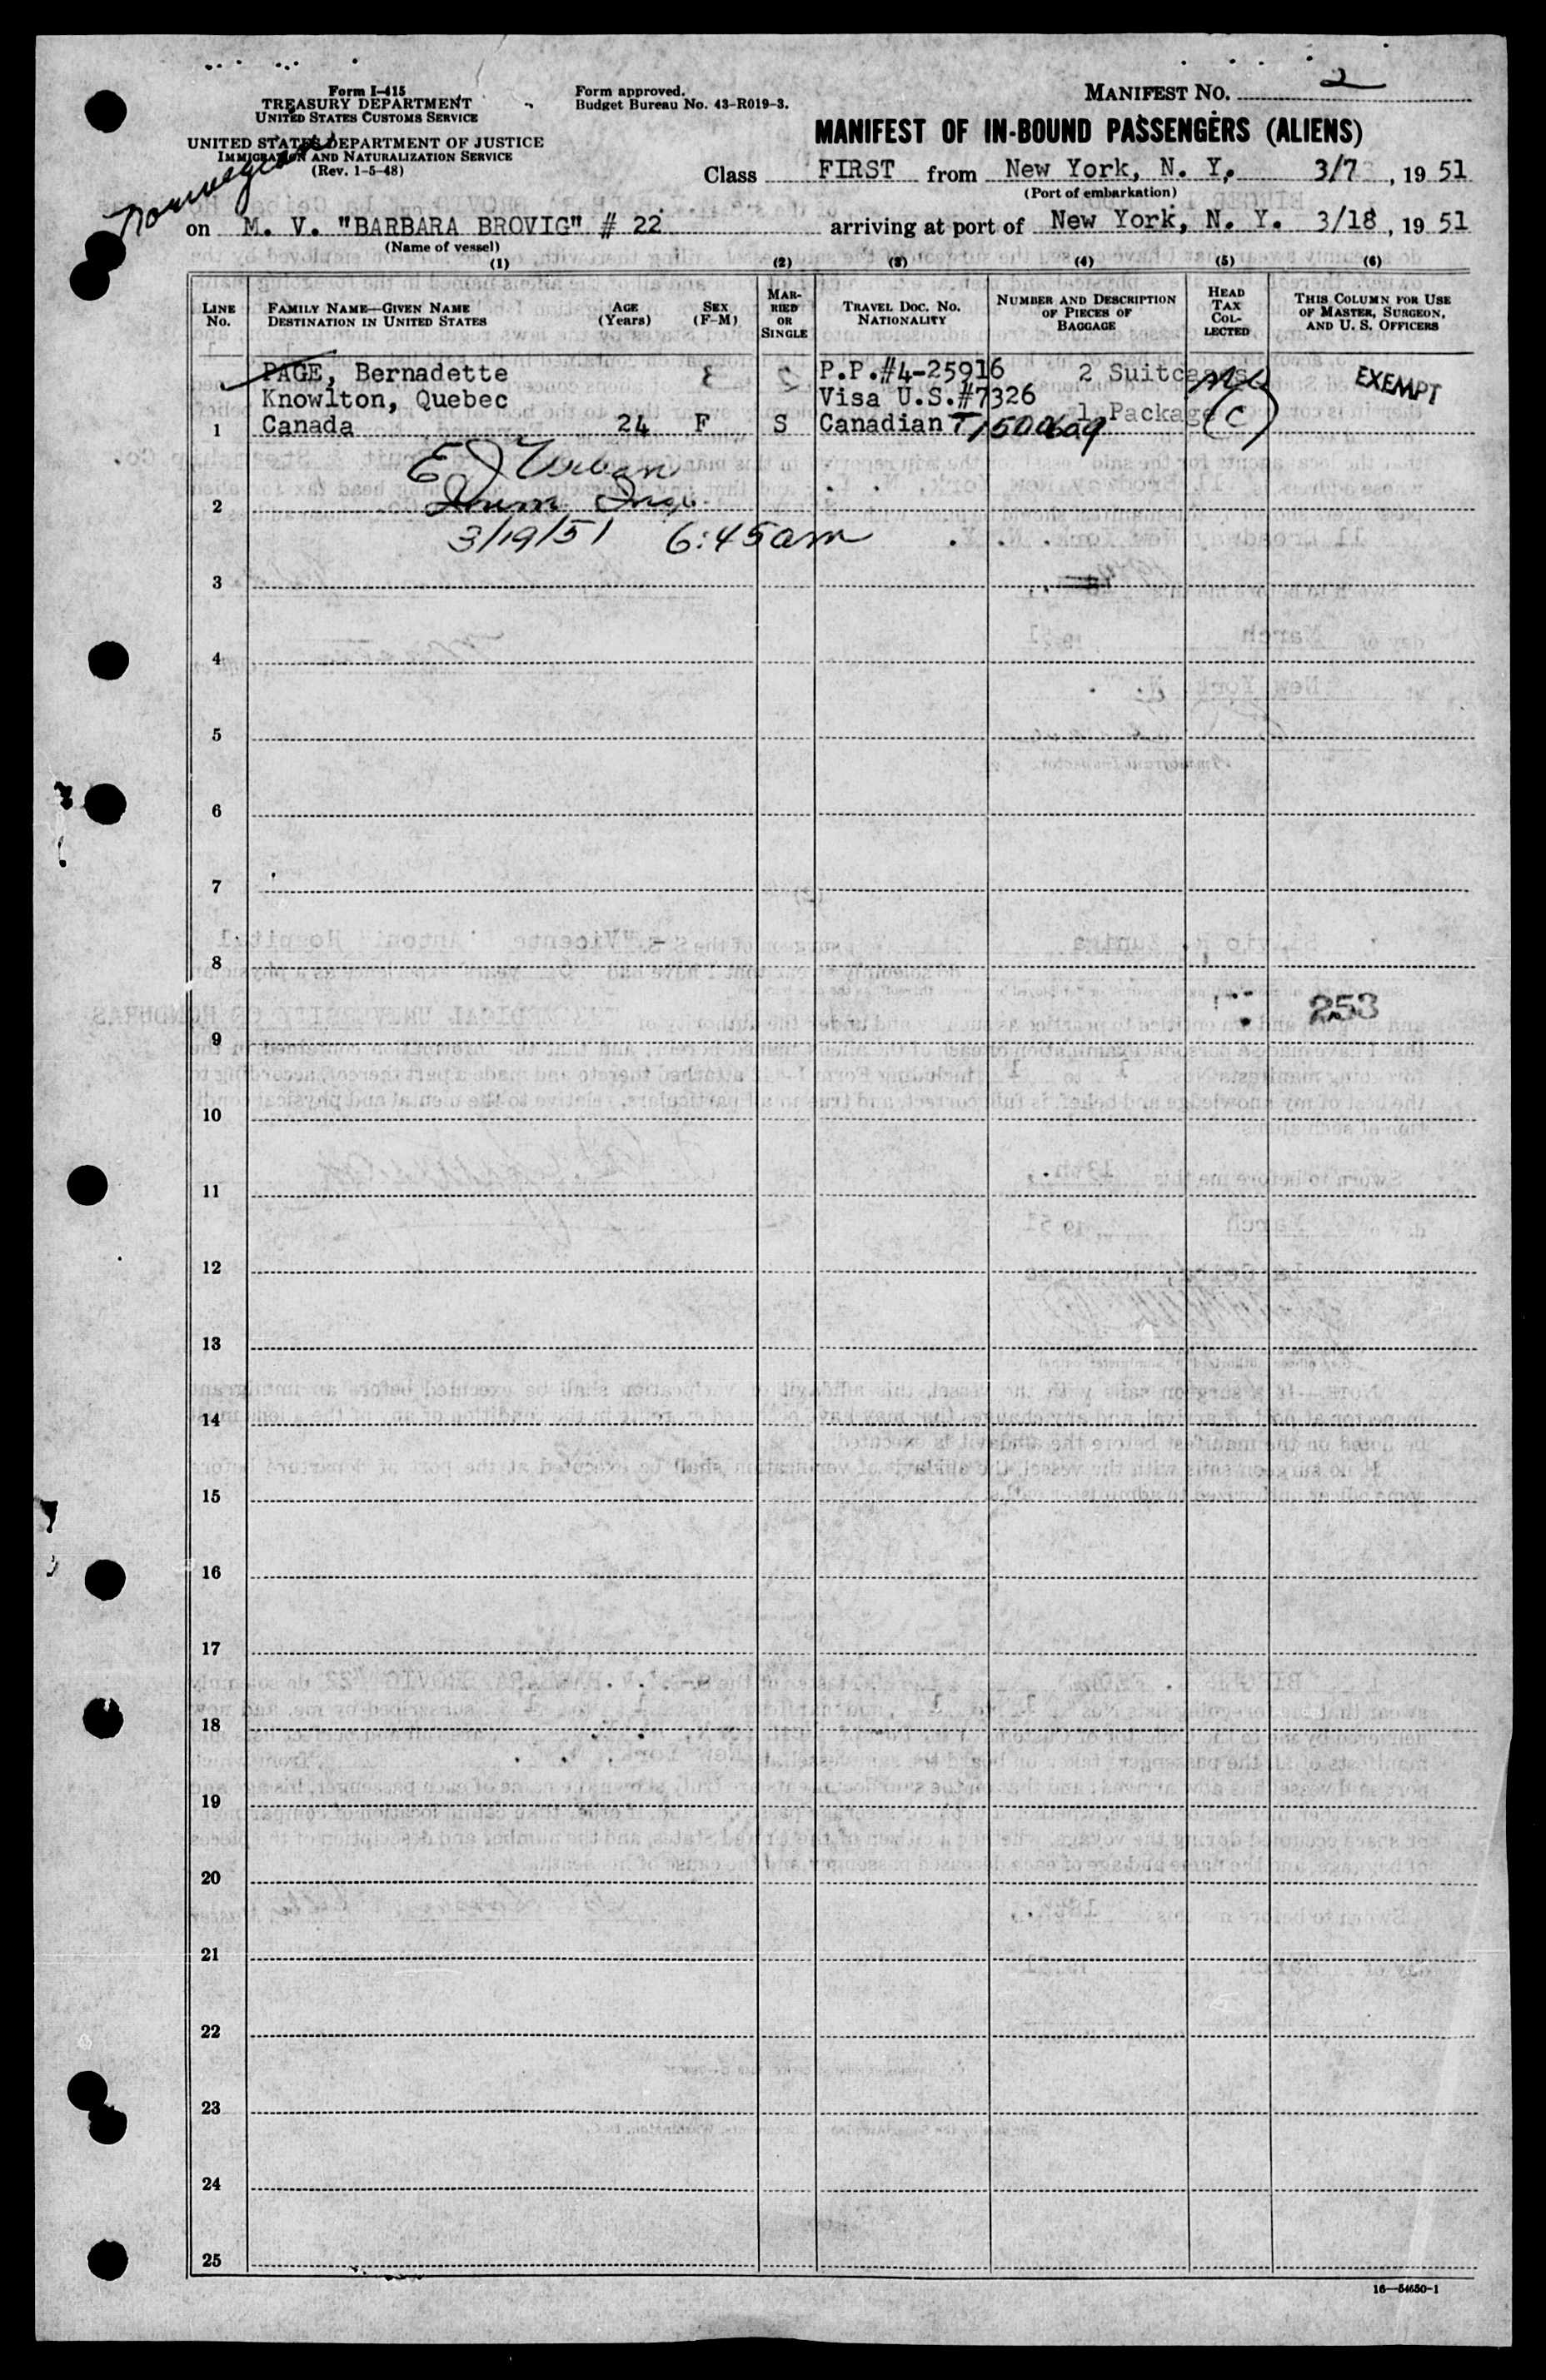 Form I-415
TREASURY DEPARTMENT
UNITED STATES CUSTOMS SERVICE
UNITED STATES DEPARTMENT OF JUSTICE
IMMIGRATION AND NATURALIZATION SERVICE
(Rev. 1-5-48)
Norwegian
Form approved.
Budget Bureau No. 43-R019-3.
MANIFEST NO. 2
MANIFEST OF IN-BOUND PASSENGERS (ALIENS)
Class FIRST from New York, N. Y. 3/7, 19 51
(Port of embarkation)
on M. V. "BARBARA BROVIG" # 22 arriving at port of New York, N. Y. 3/18, 19 51
(Name of vessel)
(1) (2) (3) (4) (5) (6)
LINE No.
FAMILY NAME—GIVEN NAME
DESTINATION IN UNITED STATES
AGE (Years)
SEX (F-M)
MARRIED OR SINGLE
TRAVEL DOC. NO.
NATIONALITY
NUMBER AND DESCRIPTION OF PIECES OF BAGGAGE
HEAD TAX COLLECTED
THIS COLUMN FOR USE OF MASTER, SURGEON, AND U. S. OFFICERS
PAGE, Bernadette P.P.#4-25916 2 Suitcases EXEMPT
Knowlton, Quebec Visa U.S.#7326 1 Package (C)
1 Canada 24 F S Canadian
2
3/19/51 6:45am
3
4
5
6
7
8
253
9
10
11
12
13
14
15
16
17
18
19
20
21
22
23
24
25
16—54650-1